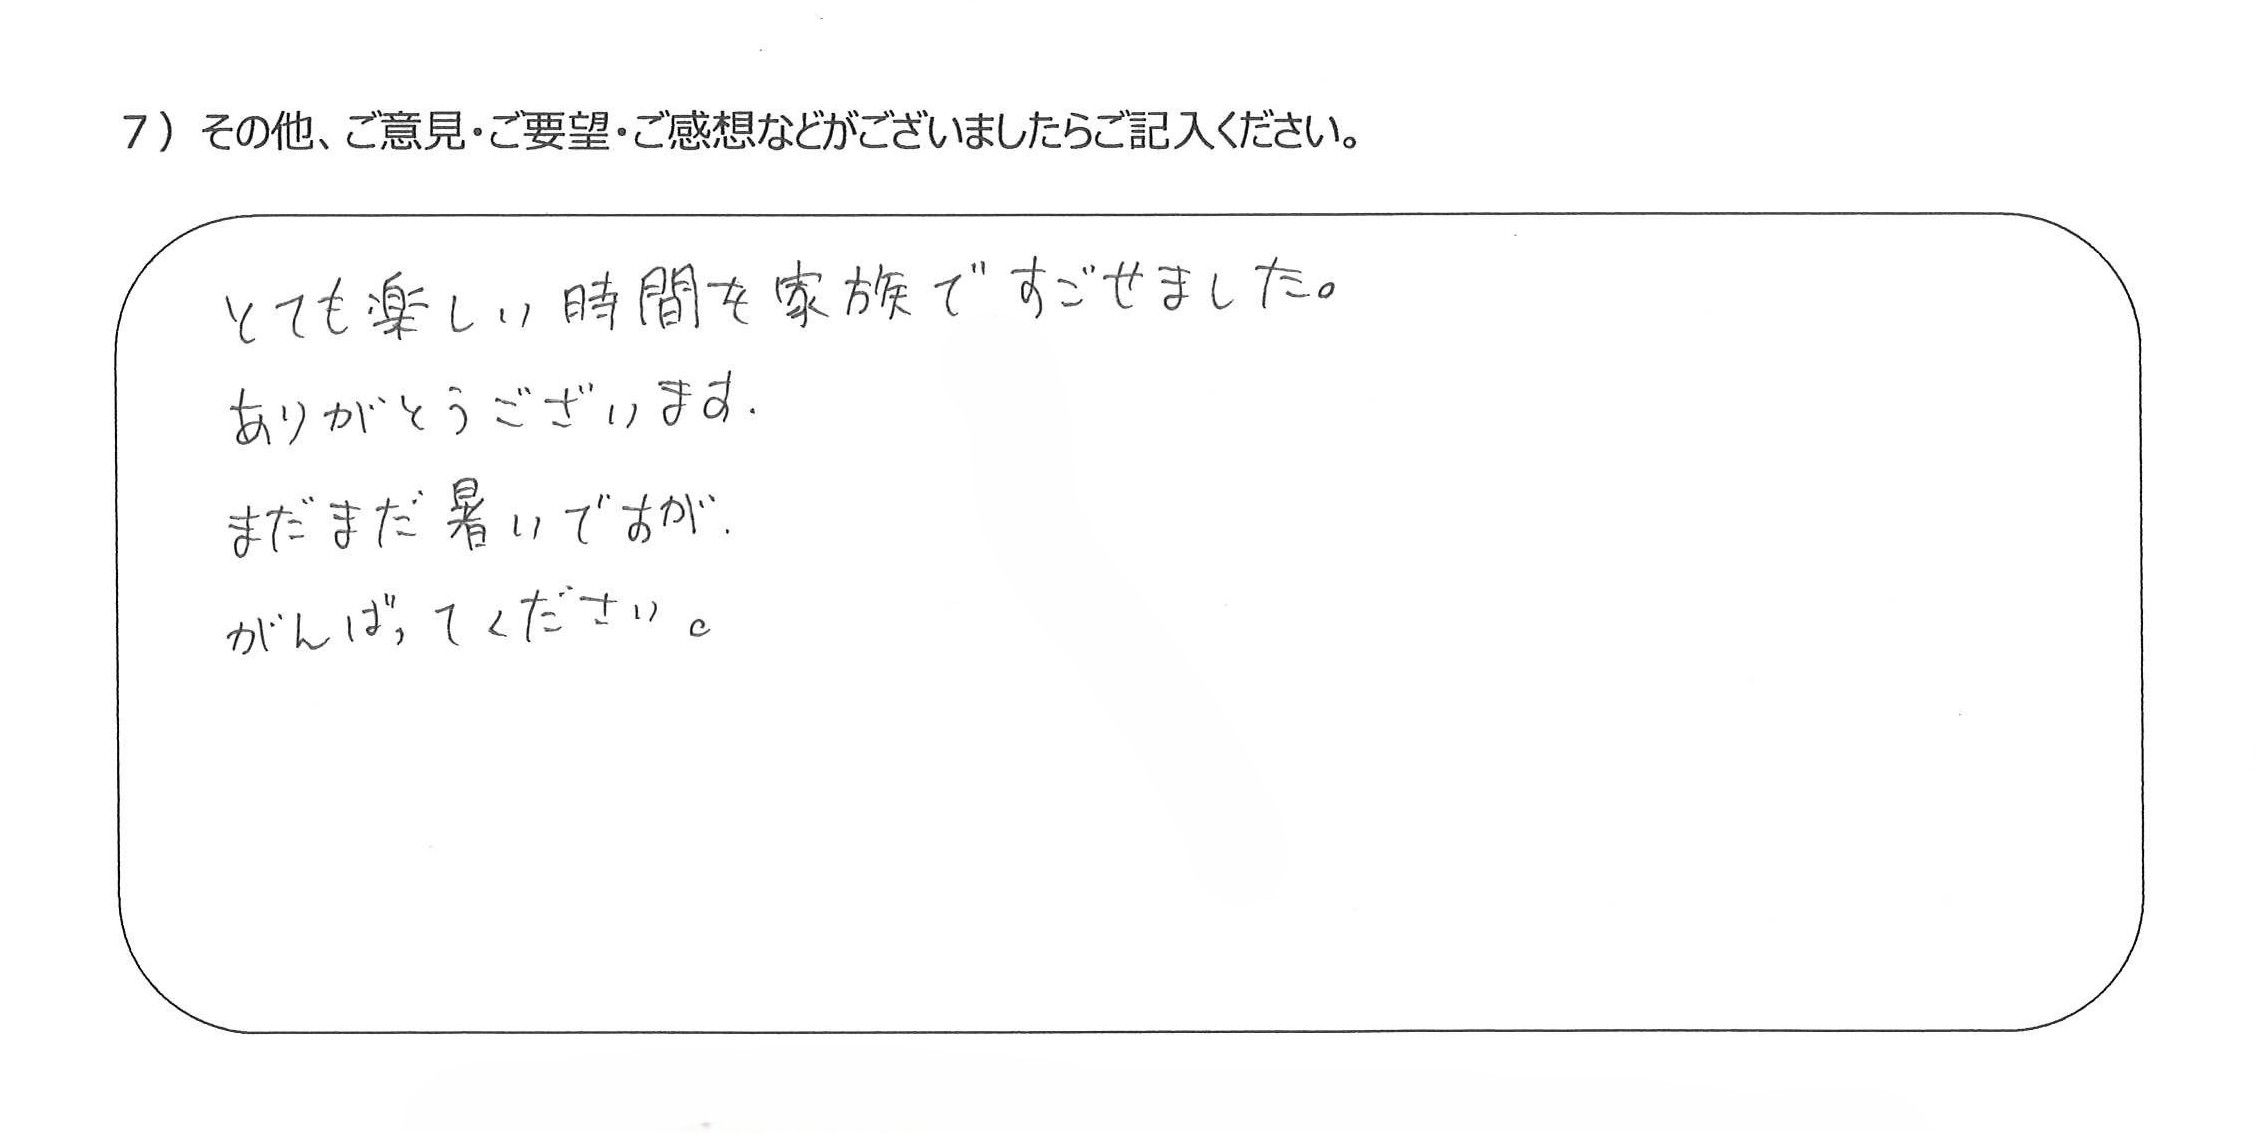 7）その他、ご意見・ご要望・ご感想などがございましたらご記入ください。
とても楽しい時間を家族ですごせました。
ありがとうございます.
まだまだ暑いですが.
がんばってください。